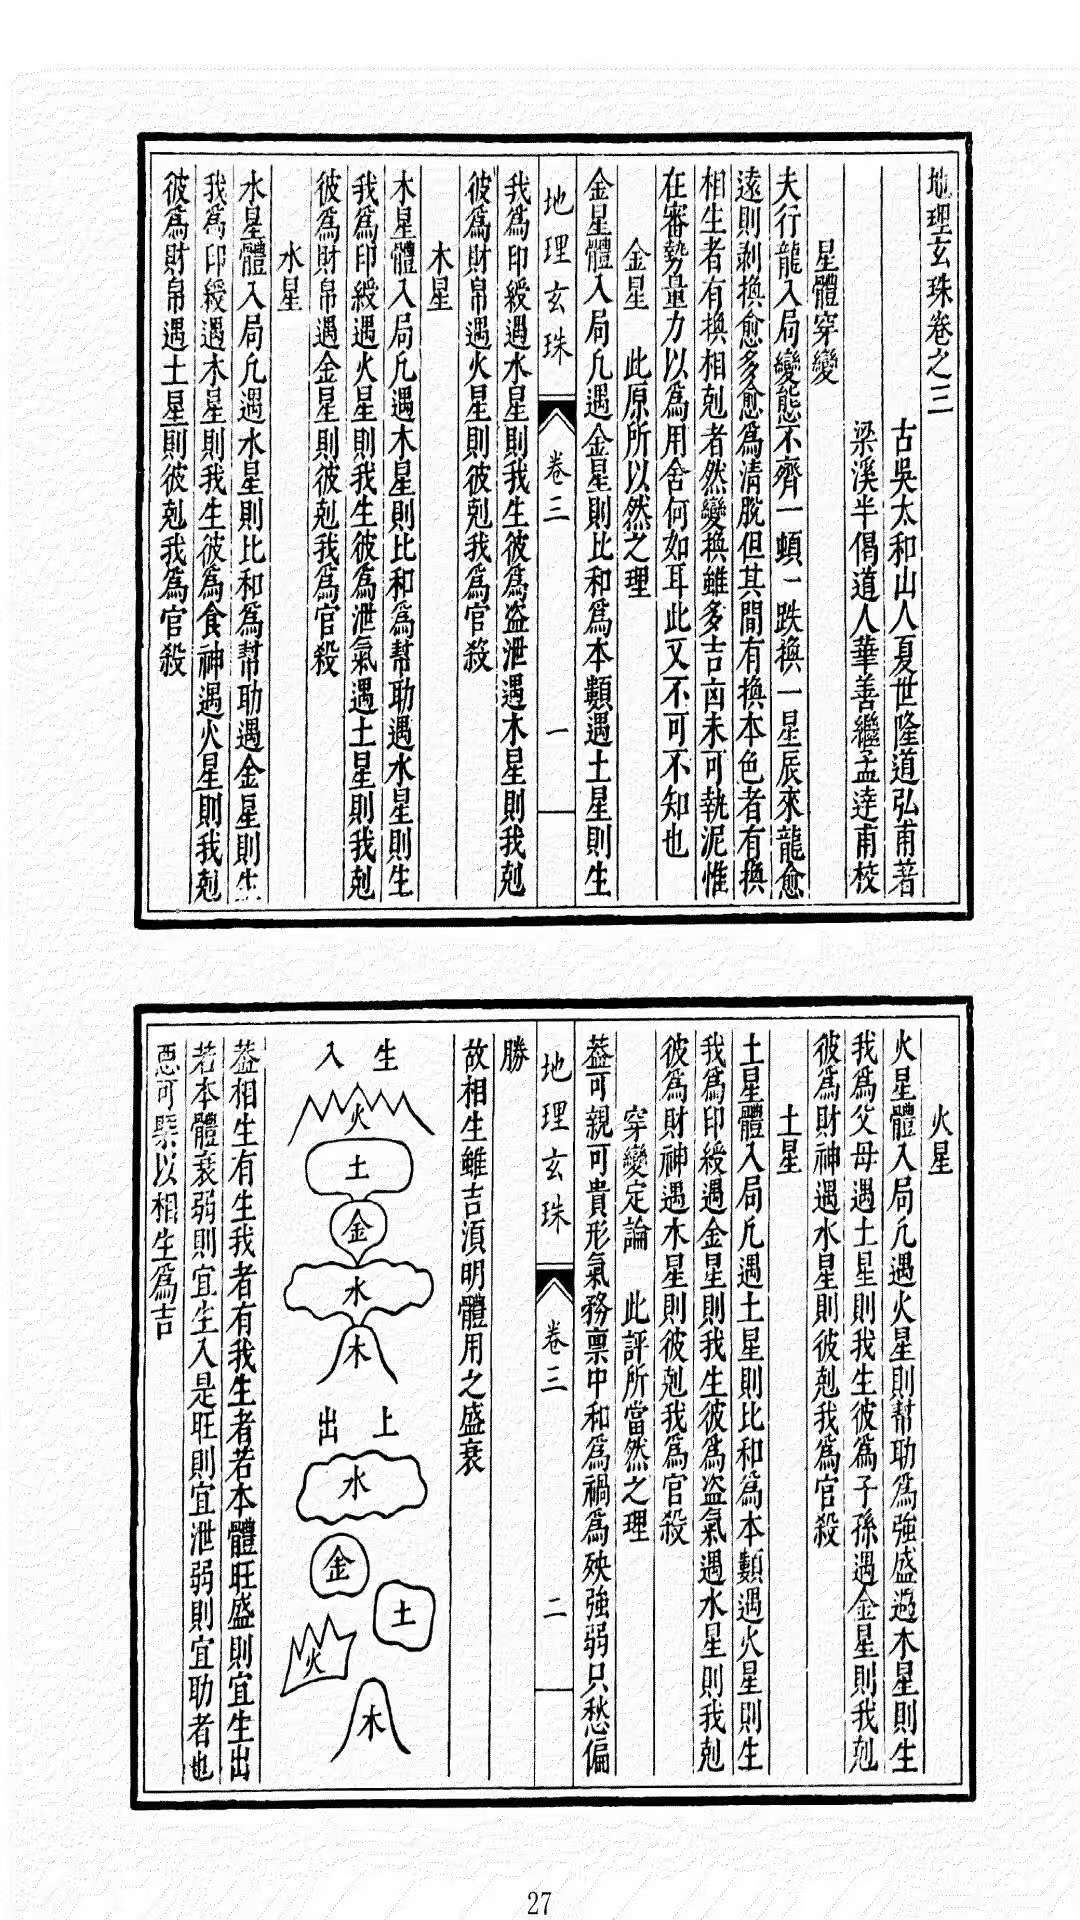 地理玄珠卷之三
古吳太和山人夏世隆道弘甫著
梁溪半偈道人華善繼孟達甫校
星體穿變
夫行龍入局變態不齊一頓一跌換一星辰來龍愈
遠則剥換愈多愈爲清脫但其間有換本色者有換
相生者有換相剋者然變換雖多吉凶未可執泥惟
在審勢量力以爲用舍何如耳此又不可不知也
金星　此原所以然之理
金星體入局凢遇金星則比和爲本類遇土星則生
地理玄珠　卷三　一
我爲印綬遇水星則我生彼爲盜泄遇木星則我剋
彼爲財帛遇火星則彼剋我爲官殺
木星
木星體入局凢遇木星則比和爲幫助遇水星則生
我爲印綬遇火星則我生彼爲泄氣遇土星則我剋
彼爲財帛遇金星則彼剋我爲官殺
水星
水星體入局凢遇水星則比和爲幫助遇金星則生
我爲印綬遇木星則我生彼爲食神遇火星則我剋
彼爲財帛遇土星則彼剋我爲官殺
火星
火星體入局凢遇火星則幫助爲強盛遇木星則生
我爲父母遇土星則我生彼爲子孫遇金星則我剋
彼爲財神遇水星則彼剋我爲官殺
土星
土星體入局凢遇土星則比和爲本類遇火星則生
我爲印綬遇金星則我生彼爲盜氣遇水星則我剋
彼爲財神遇木星則彼剋我爲官殺
穿變定論　此評所當然之理
葢可親可貴形氣務禀中和爲禍爲殃強弱只愁偏
地理玄珠　卷三　二
勝
故相生雖吉湏明體用之盛衰
生入
火
土
金
水
木
上出
水
金
土
火
木
葢相生有生我者有我生者若本體旺盛則宜生出
若本體衰弱則宜生入是旺則宜泄弱則宜助者也
惡可槩以相生爲吉
27